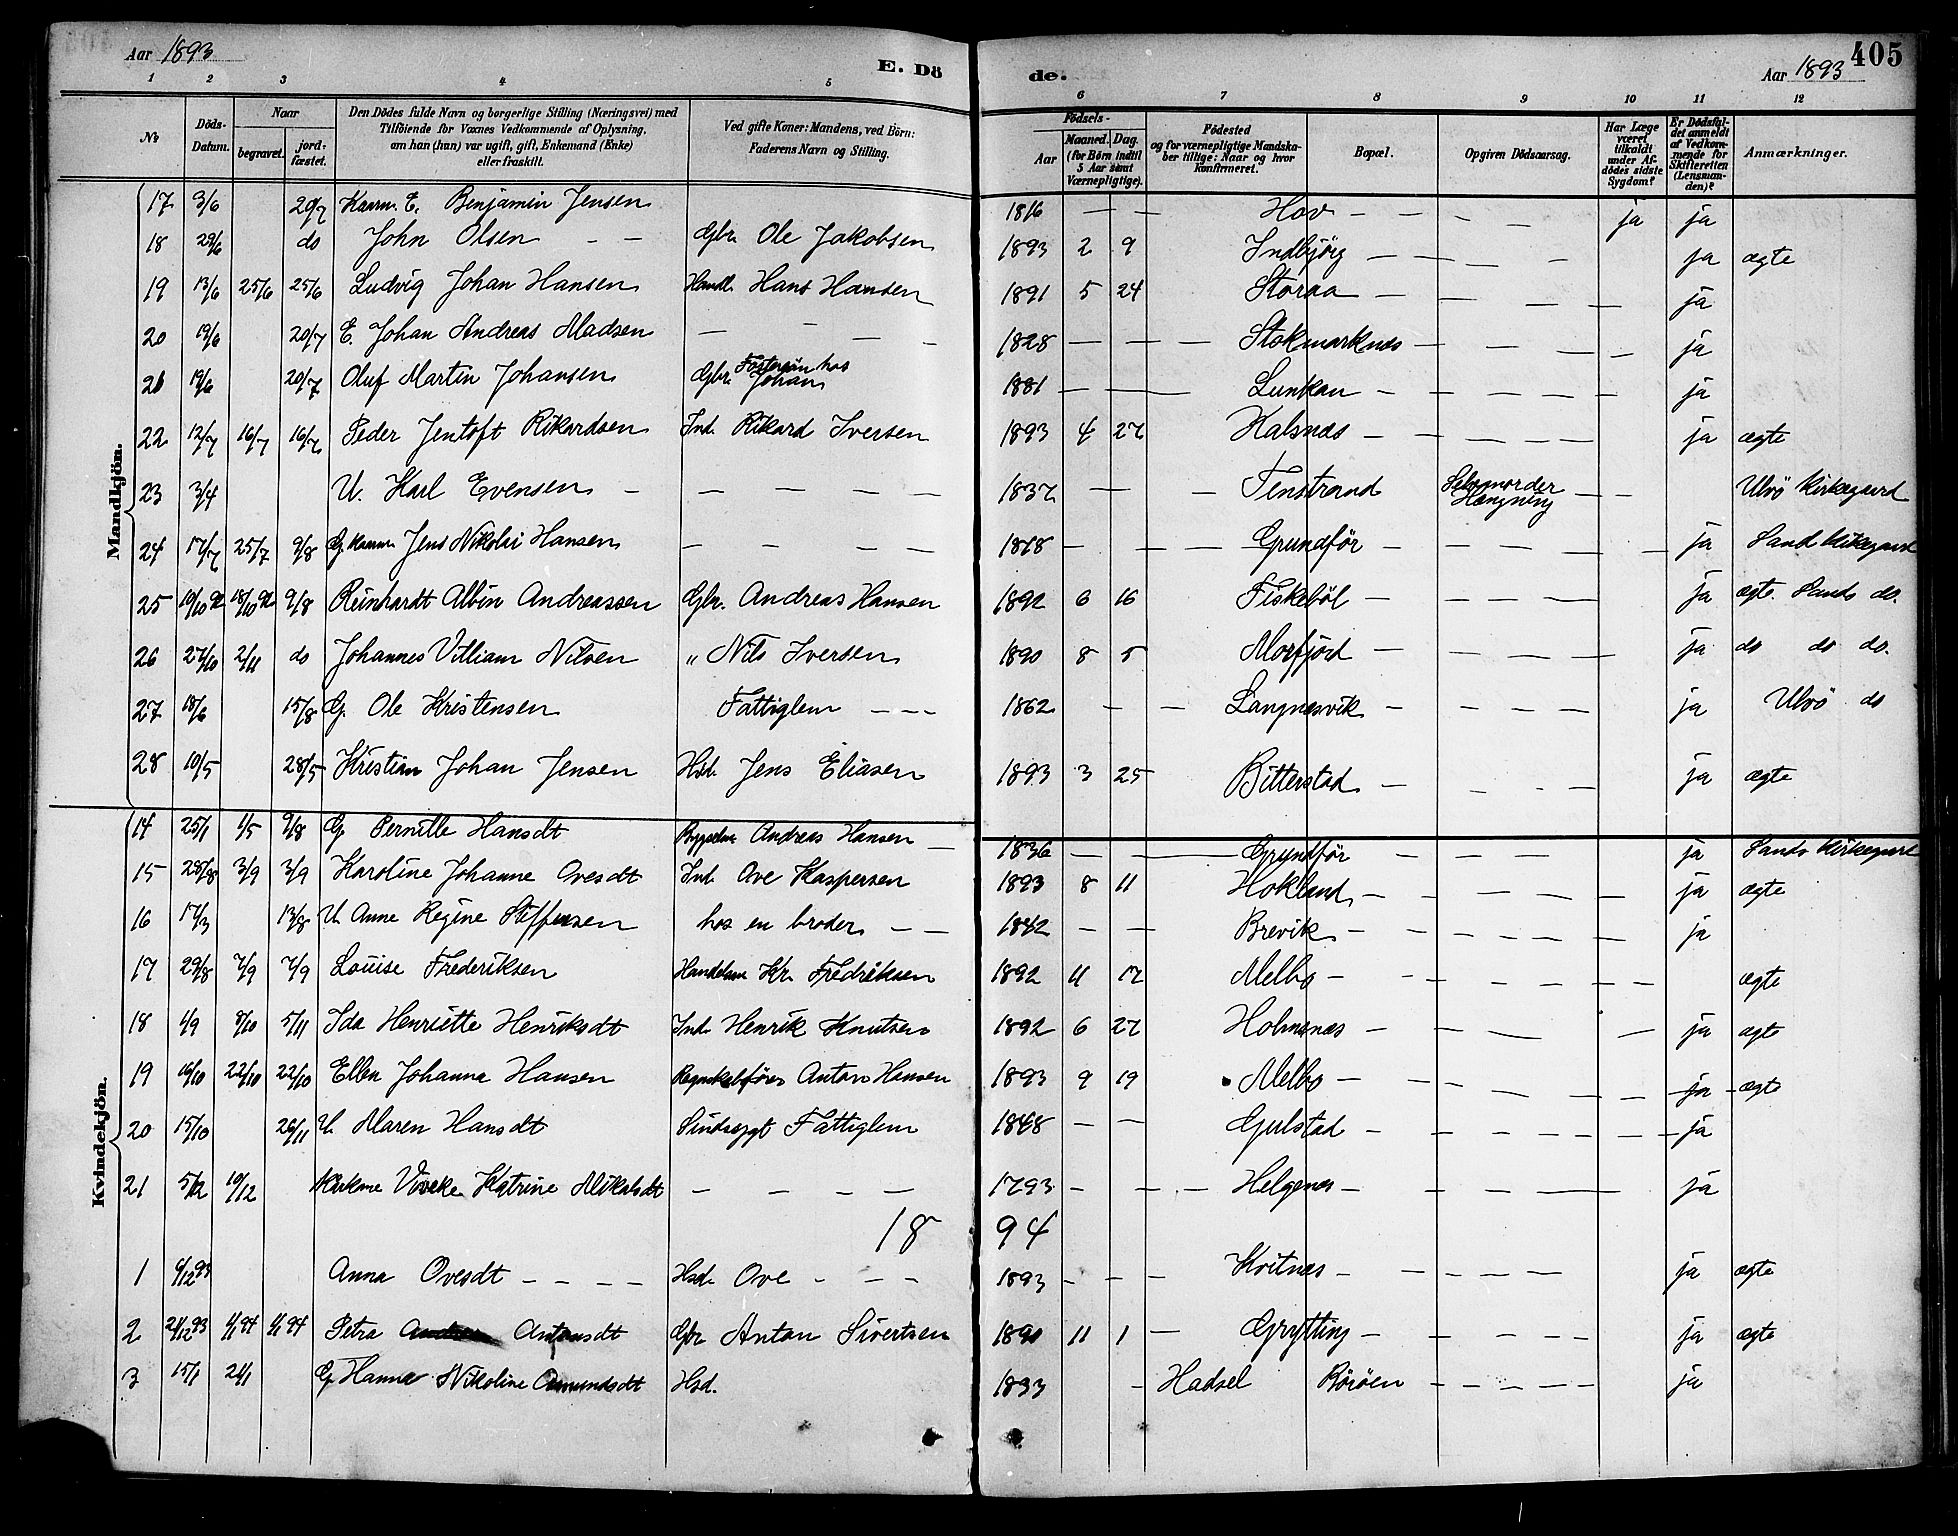 Aar 1893
E. Dö
de.
Aar 1893
405
1 2 3 4 5 6 7 8 9 10 11 12
No
Döds-Datum.
Naar
begravet.
jord-fæstet.
Den Dödes fulde Navn og borgerlige Stilling (Næringsvei) med
Tilföiende for Voxnes Vedkommende af Oplysning,
om han (hun) var ugift, gift, Enkemand (Enke)
eller fraskilt.
Ved gifte Koner: Mandens, ved Börn:
Faderens Navn og Stilling.
Födsels-
Aar
Maaned. Dag.
(for Börn indtil
5 Aar samt
Værnepligtige).
Födested
og for værnepligtige Mandska-
ber tillige: Naar og hvor
konfirmeret.
Bopæl.
Opgiven Dödsaarsag.
Har Læge
været
tilkaldt
under Af-
dödes sidste
Sygdom?
Er Dödsfal-
det anmeldt
af Vedkom-
mende for
Skifteretten
(Lensman-
den)?
Anmærkninger.
Mandkjön.
17 3/6 20/7 Kaarm. E. Benjamin Jensen 1816 — — Hov — — — — ja ja
18 29/6 do John Olsen — — Gbr. Ole Jakobsen 1893 2 9 Indbjörg — — — — ja ægte
19 13/6 25/6 25/6 Ludvig Johan Hansen Handl. Hans Hansen 1891 5 24 Storaa — — — — ja
20 19/6 20/7 E. Johan Andreas Madsen — — — 1828 — — — Stokmarknes — — — — ja
21 19/6 20/7 Oluf Martin Johansen Gbr. Fostersön hos Johan 1881 — — — Lunkan — — — — ja
22 12/7 16/7 16/7 Peder Jentoft Rikardsen Ind. Rikard Iversen 1893 4 27 Kalsnæs — — — — ja ægte
23 3/4 U. Karl Evensen — — — — — 1837 — — Tenstrand Selvmorder Hængning — — Ulvö Kirkegaard
24 17/7 25/7 9/8 G. Kaarm. Jens Nikolai Hansen — — — — 1818 — — — Grundför — — — — — ja Sand Kirkegaard
25 10/10 92 18/10 92 9/8 Reinhardt Albin Andreassen Gbr. Andreas Hansen 1892 6 16 Fiskeböl — — — — ja ægte. Sands do.
26 27/10 2/11 do Johannes Villiam Nilsen " Nils Iversen 1890 8 5 Morfjörd — — — — ja do do do.
27 18/6 15/8 G. Ole Kristensen Fattiglem — — — 1862 — — Langnesvik — — — — ja Ulvö do
28 10/5 28/5 Kristian Johan Jensen Hsd. Jens Eliasen 1893 3 25 Bitterstad — — — — ja ægte
Kvindekjön.
14 25/1 1/5 9/8 G. Pernille Hansdt Andreas Hansen — 1836 — — — Grundför — — — — ja Sands Kirkegaard
15 28/8 3/9 3/9 Karoline Johanne Ovesdt Ind. Ove Kaspersen 1893 8 11 Hokland — — — — ja ægte
16 17/3 13/8 U. Anne Regine Steffensen hos en broder — — 1842 — — Brevik — — — — — ja
17 29/8 7/9 7/9 Louise Frederiksen Handelsm. Kr. Fredriksen 1892 11 17 Melbo — — — — — — ægte
18 4/9 8/10 5/11 Ida Henriette Henriksdt Ind. Henrik Knutsen 1892 6 27 Holmsnæs — — — — ja ægte
19 16/10 22/10 22/10 Ellen Johanna Hansen Regnskabsförer Anton Hansen 1893 9 19 Melbo — — — — — ja — ægte
20 15/10 26/11 U. Maren Hansdt Sindssygt Fattiglem 1848 — — Gulstad — — — — — — ja
21 5/12 10/12 Viveke Katrine Mikalsdt — — — — 1793 — — — Helgenes — — — — — ja
18 94
1 9/12 93 Anna Ovesdt — — — — Hsd. Ove — — — 1893 — — — Kvitnes — — — — ja ægte
2 21/12 93 1/1 94 1/1 94 Petra Antonsdt Gbr Anton Sivertsen 1890 11 1 — Grytting — — — — ja ægte
3 15/1 21/1 G. Hanna Nikoline Amundsdt Hsd. 1833 — Hadsel Böröen — — — — ja